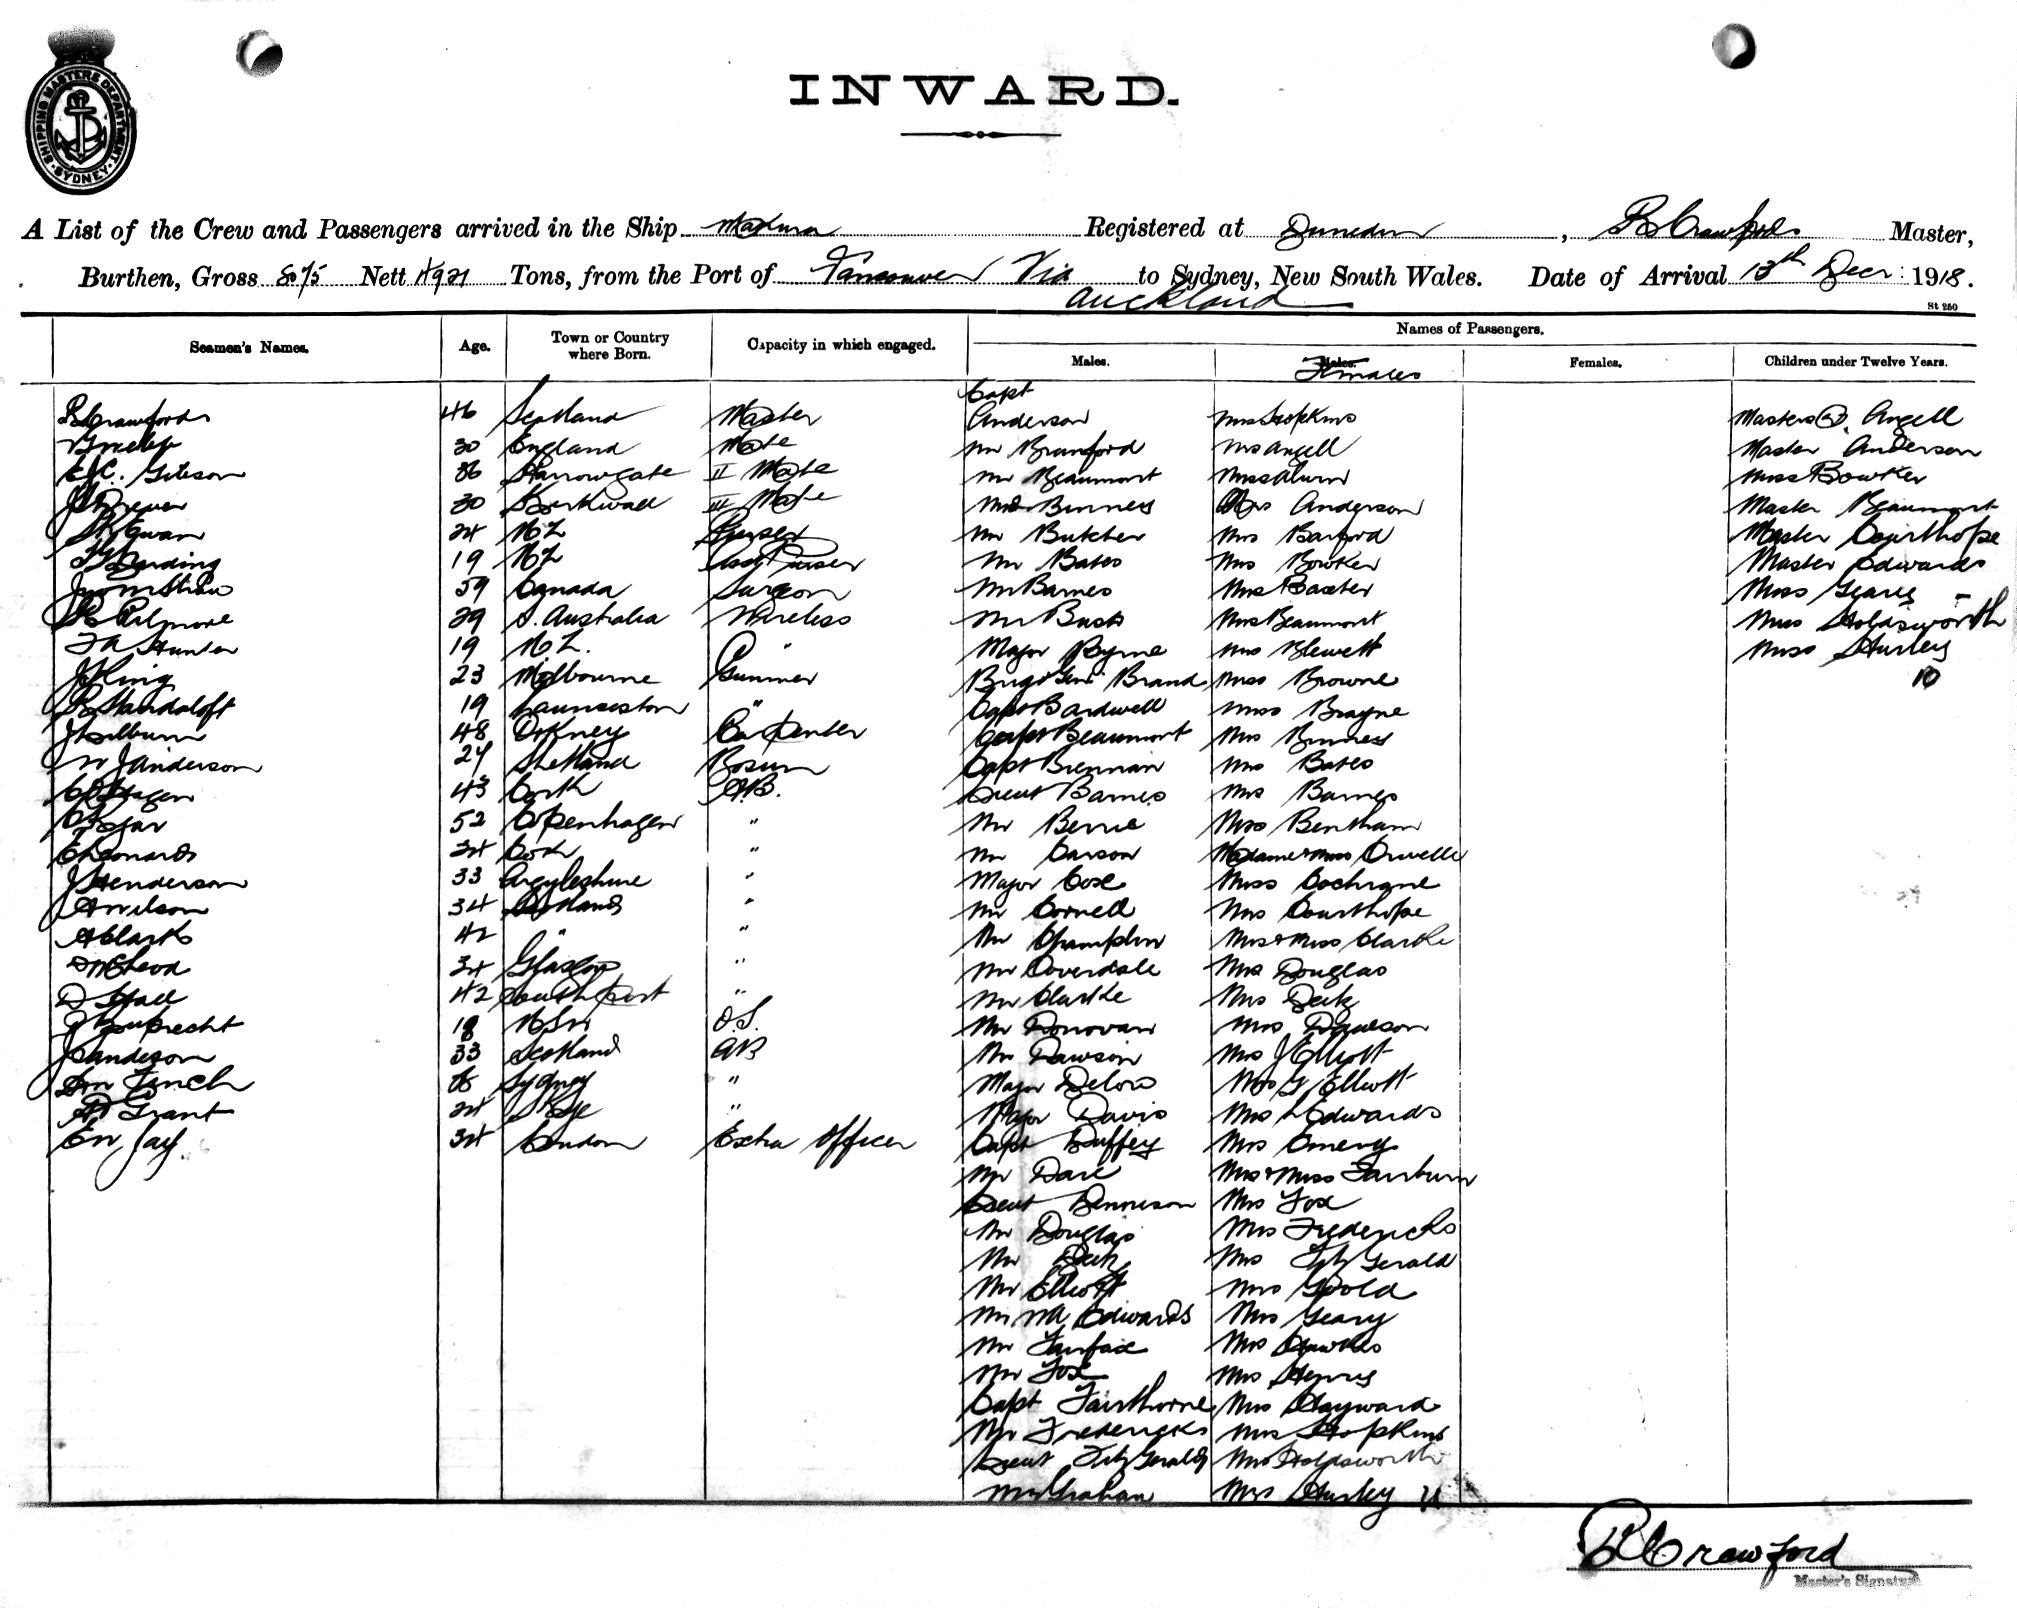 SHIPPING MASTERS DEPARTMENT · SYDNEY ·
INWARD.
A List of the Crew and Passengers arrived in the Ship Makura Registered at Dunedin, R Crawford Master,
Burthen, Gross 8075 Nett 4921 Tons, from the Port of Vancouver Via Auckland to Sydney, New South Wales. Date of Arrival 13th Decr 1918.
St 250
Names of Passengers.
Seamen's Names. Age. Town or Country where Born. Capacity in which engaged. Males. Females Females. Children under Twelve Years.
Capt
R Crawford 46 Scotland Master Anderson Mrs Hopkins Masters (2) Angell
30 England Mate Mr Branford Mrs Angell Master Anderson
Gibson 36 Harrowgate II Mate Mr Beaumont Miss Bowker
30 III Mate Binness Mrs Anderson Master Beaumont
24 NZ Purser Mr Butcher Mrs Barford Master Courthope
19 NZ Asst Purser Mr Bates Mrs Bowker Master Edwards
59 Canada Surgeon Mr Barnes Mrs Baxter Miss Geary
29 S. Australia Wireless Mr Mrs Beaumont Miss Holdsworth
Hunter 19 N.Z. " Major Byrne Mrs Blewett Miss Hurley
J King 23 Melbourne Gunner Brig Genl Brand Miss Browne 10
19 Launceston " Capt Bardwell Miss Brayne
48 Orkney Carpenter Capt Beaumont Mrs Binness
W J Anderson 27 Shetland Bosun Capt Brennan Mrs Bates
43 Cork A.B. Lieut Barnes Mrs Barnes
52 Copenhagen " Mr Berrie Mrs Bentham
E Leonards 24 Cork " Mr Carson Madame & Miss
J Henderson 33 Argyleshire " Major Cox Miss Cochrane
A Wilson 34 " Mr Cornell Mrs Courthope
A Clark 42 " " Mr Champlin Mrs & Miss Clarke
McLeod 34 Glasgow " Mr Coverdale Mrs Douglas
D Hall 42 Southport " Mr Clarke Mrs
Rupprecht 18 NSW O.S. Mr Donovan Mrs
J Sanderson 33 Scotland AB Mr Dawson Mrs J Elliott
Wm Finch Sydney " Major Mrs G Elliott
A Grant 24 Skye " Major Davis Mrs L Edwards
E W Jay 34 London Extra Officer Capt Duffey Mrs Emery
Mr Dare Mrs & Miss Fairburn
Lieut Dennison Mrs Fox
Mr Douglas Mrs Fredericks
Mr Mrs Fitz Gerald
Mr Elliott Mrs Goold
Mr Edwards Mrs Geary
Mr Fairfax Mrs Hawkes
Mr Fox Mrs
Capt Fairthorne Mrs Hayward
Mr Fredericks Mrs Hopkins
Lieut Fitz Gerald Mrs Holdsworth
Mr Graham Mrs Hurley
R Crawford
Master's Signature.